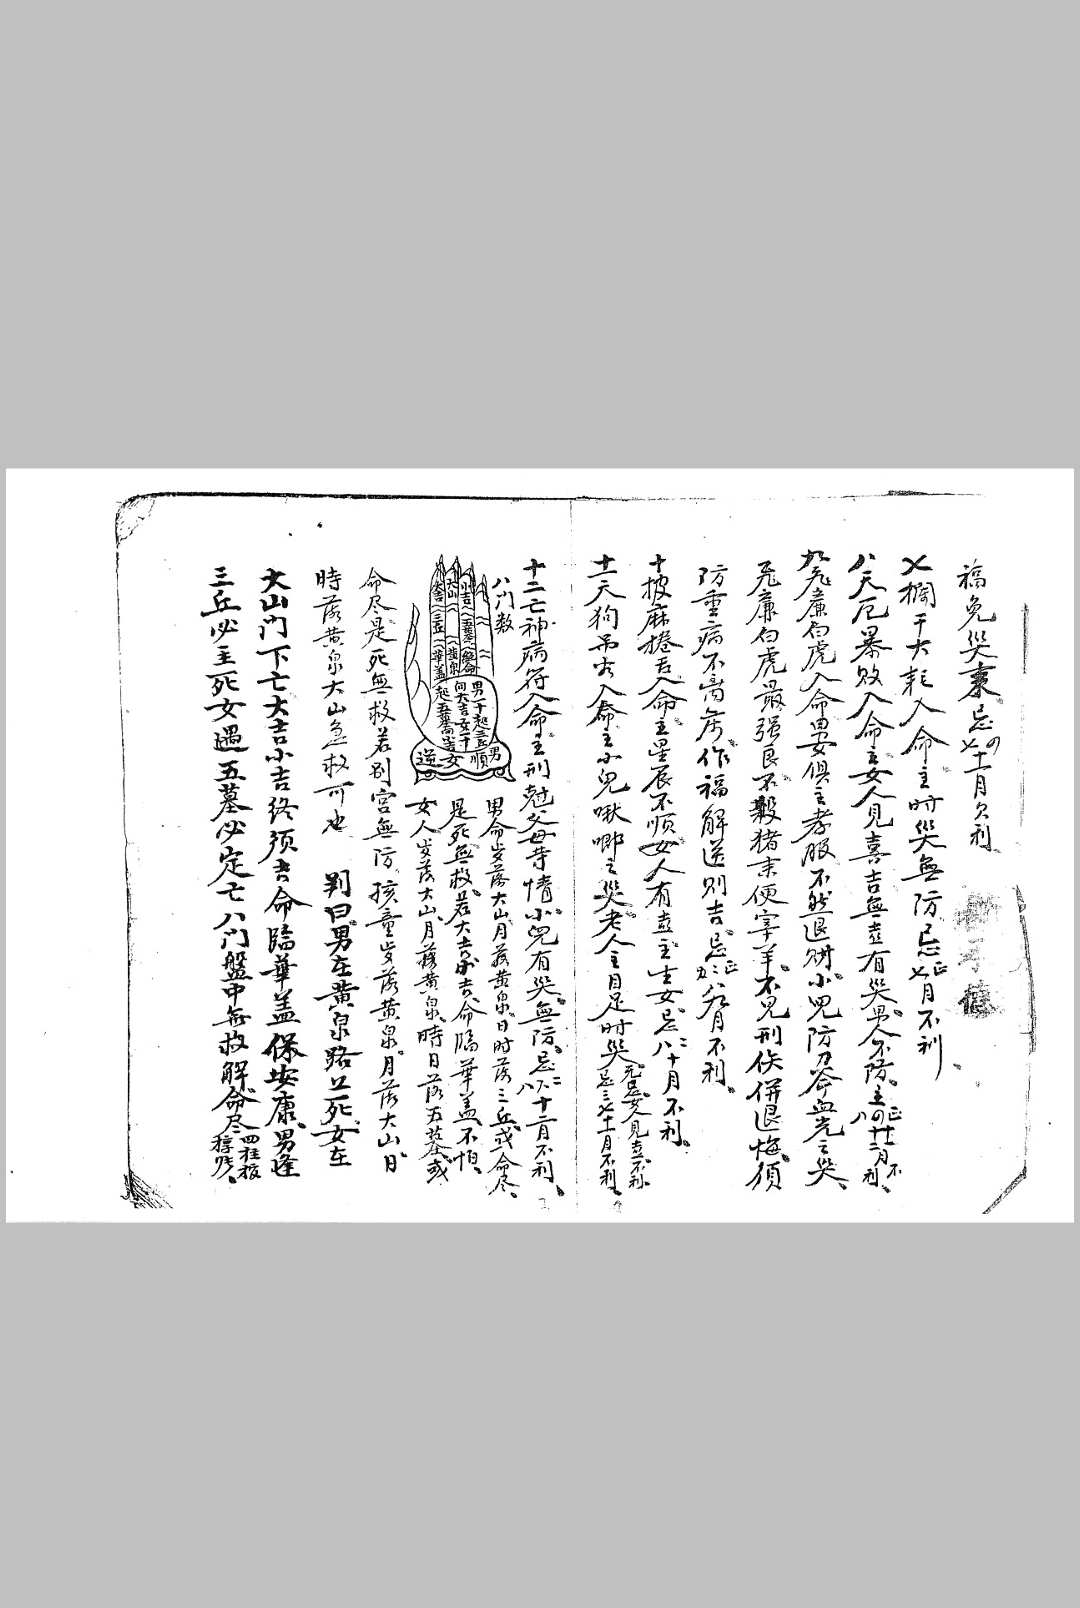 福免災 忌四七十一月欠利
七欄干大耗入命主时災無防忌正七月不利
八天厄暴敗入命主女人見喜吉無壴有災男人不防主正四十十二月不利
九飛廉白虎入命男女俱主孝服不然退財小児防刀斧血光之災
飛廉白虎最强良不殺猪来便宰羊不見刑侯併退悔須
防重病不离床作福解送則吉忌正二八九月不利
十披麻捲舌入命主星辰不順女人有壴主生女忌二八十月不利
十一天狗吊客入命主小児啾唧之災老人主目足时災
忌三七十一月不利
十二亡神病符入命主刑尅父母寺情小児有災無防忌二六八十二月不利
八門数
大吉 三丘 華盖
大山 黄泉
小吉 五墓 絶命
男一十起三丘順
向大吉女一十
起五墓
男
女
逆
男命岁落大山月落黄泉日时落三丘或一命尽
是死無救若大吉小吉命臨華盖不怕
女人岁落大山月落黄泉時日落五墓或
命尽是死無救若别宫無防孩童岁落黄泉月落大山日
時落黄泉大山急救可也 判曰男在黄泉路上死女在
大山門下亡大吉小吉终须吉命臨華盖保安康男逢
三丘必主死女遇五墓必定亡八門盤中無救解命尽